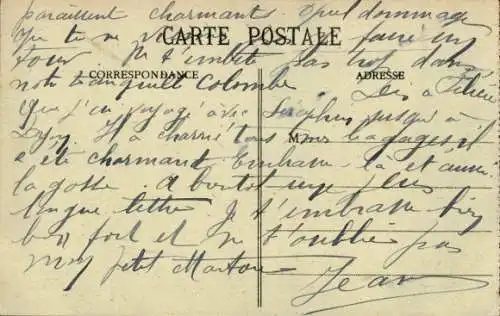 paraissent charmant quel dommage
que tu ne faire un
CARTE POSTALE
tour Ne t'embête pas trop dans
CORRESPONDANCE
ADRESSE
notre tranquille Colombe Dis à
que j'ai voyagé avec jusqu'à
M
Il a charrié tous mes bagages, il
a été charmant Embrasse-là et aussi
la gosse. A bientôt une plus
longue lettre Je t'embrasse bien
bien fort et ne t'oublie pas
mon petit
Jean